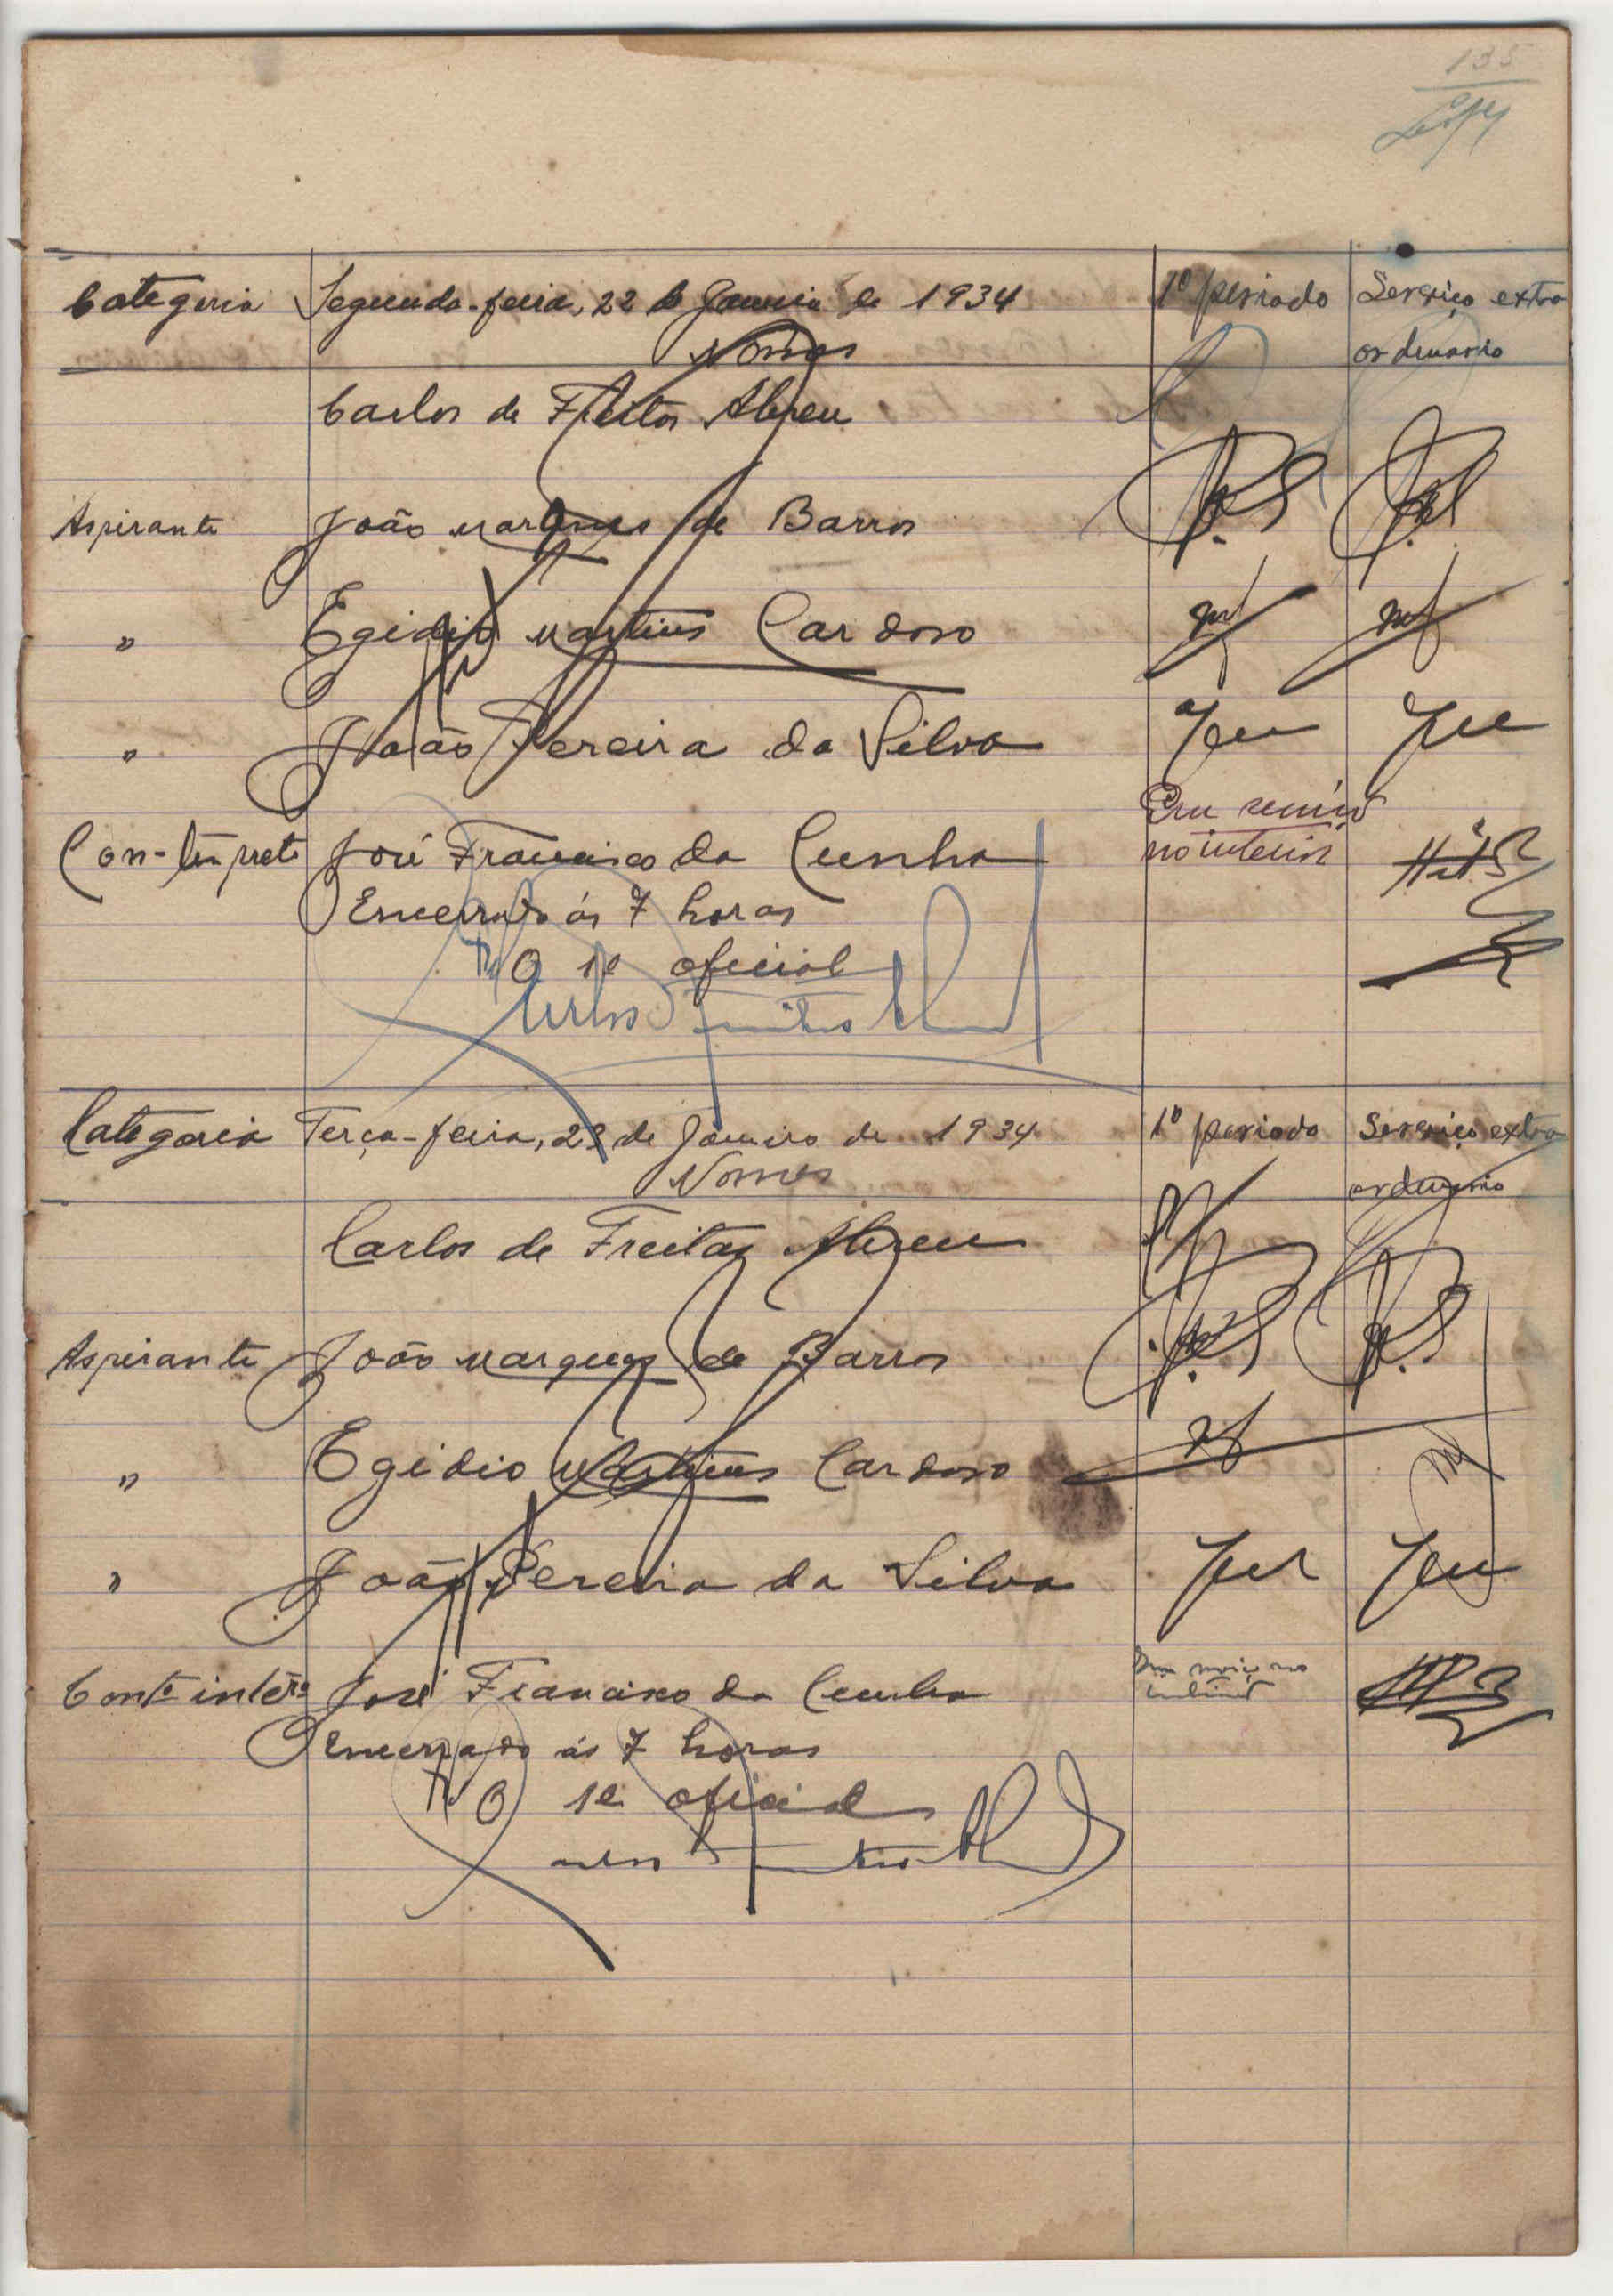 135
Categoria Segunda-feira, 22 de Janeiro de 1934 1º periodo Serviço extra
Nomes ordinario
Carlos de Freitas Abreu
Aspirante João Marques de Barros
" Egidio Martins Cardoso
" João Pereira da Silva
Em serviço
José Francisco da Cunha no interior
Encerrado ás 7 horas
O 1º oficial
Carlos Freitas Abreu
Categoria Terça-feira, 23 de Janeiro de 1934 1º periodo Serviço extra
Nomes ordinario
Carlos de Freitas Abreu
Aspirante João Marques de Barros
" Egidio Martins Cardoso
" João Pereira da Silva
José Francisco da Cunha
Encerrado ás 7 horas
O 1º oficial
Carlos Freitas Abreu